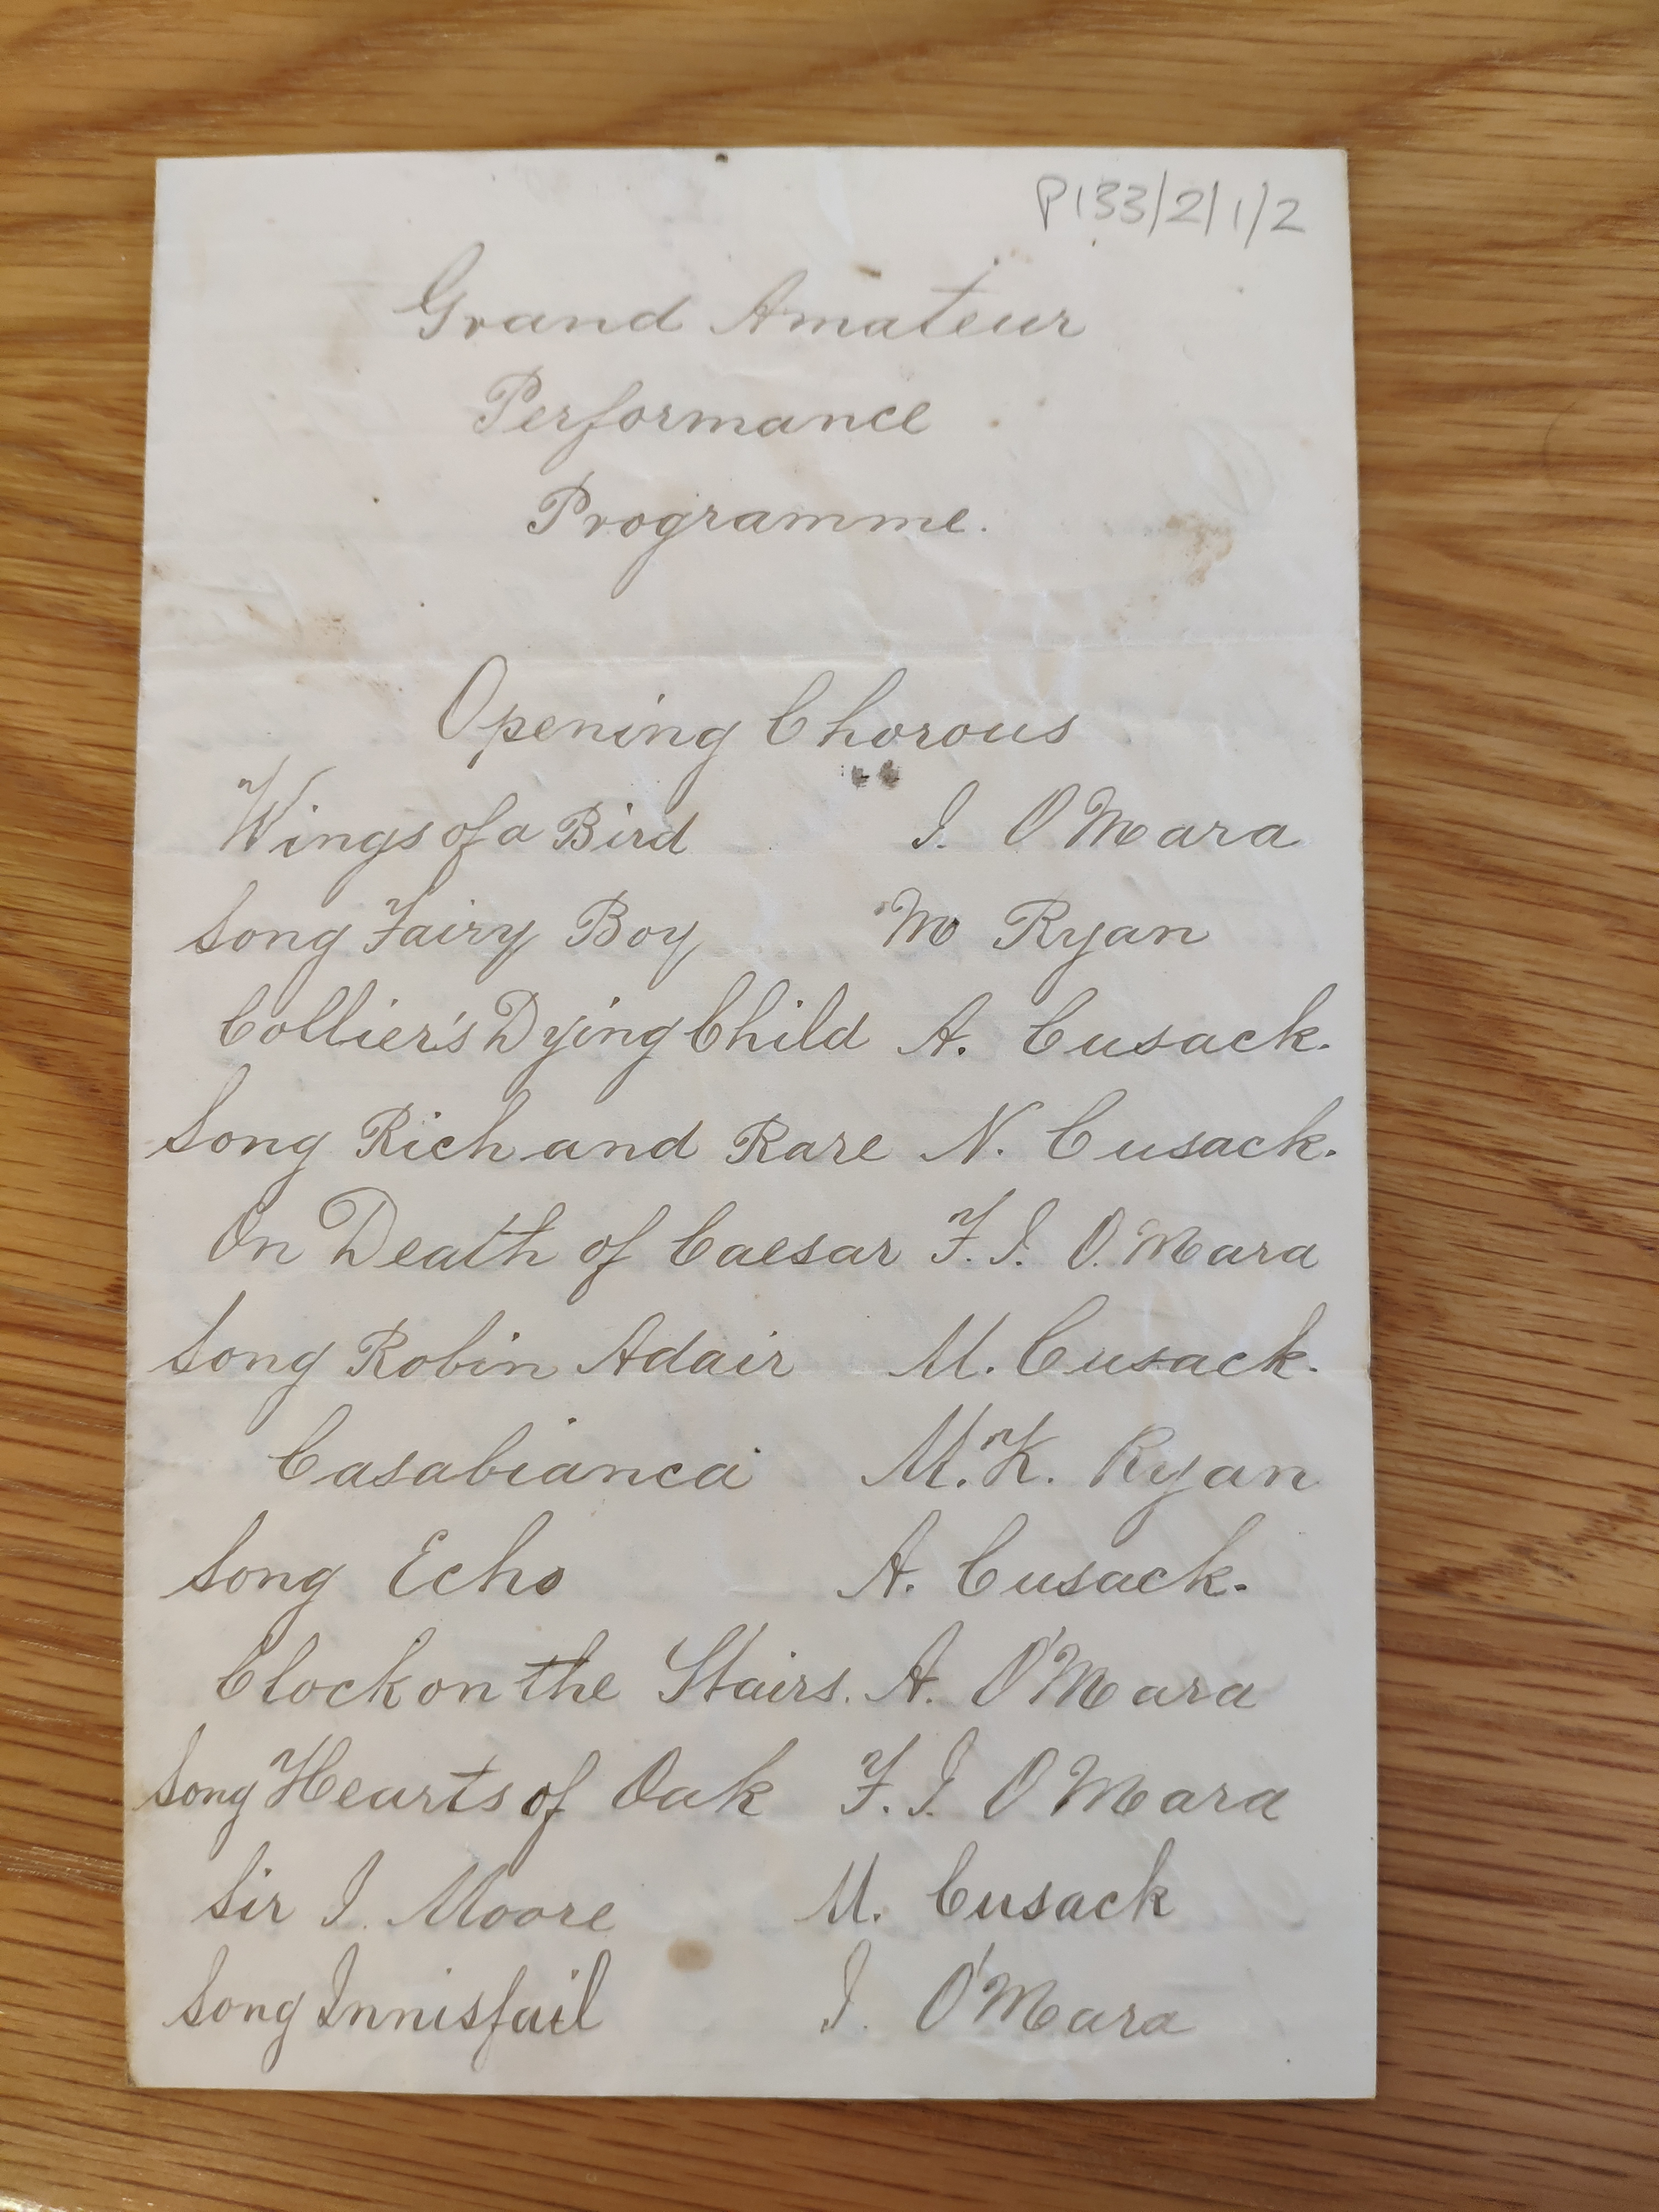 P133/2/1/2
Grand Amateur
Performance
Programme.
Opening Chorous
Wings of a Bird J. O Mara
Song Fairy Boy M Ryan
Collier's Dying Child A. Cusack.
Song Rich and Rare N. Cusack.
On Death of Caesar F. J. O. Mara
Song Robin Adair M. Cusack.
Casabianca M. K. Ryan
Song Echo A. Cusack.
Clock on the Stairs. A. O'Mara
Song Hearts of Oak F. J. O Mara
Sir J. Moore M. Cusack
Song Innisfail J. O'Mara